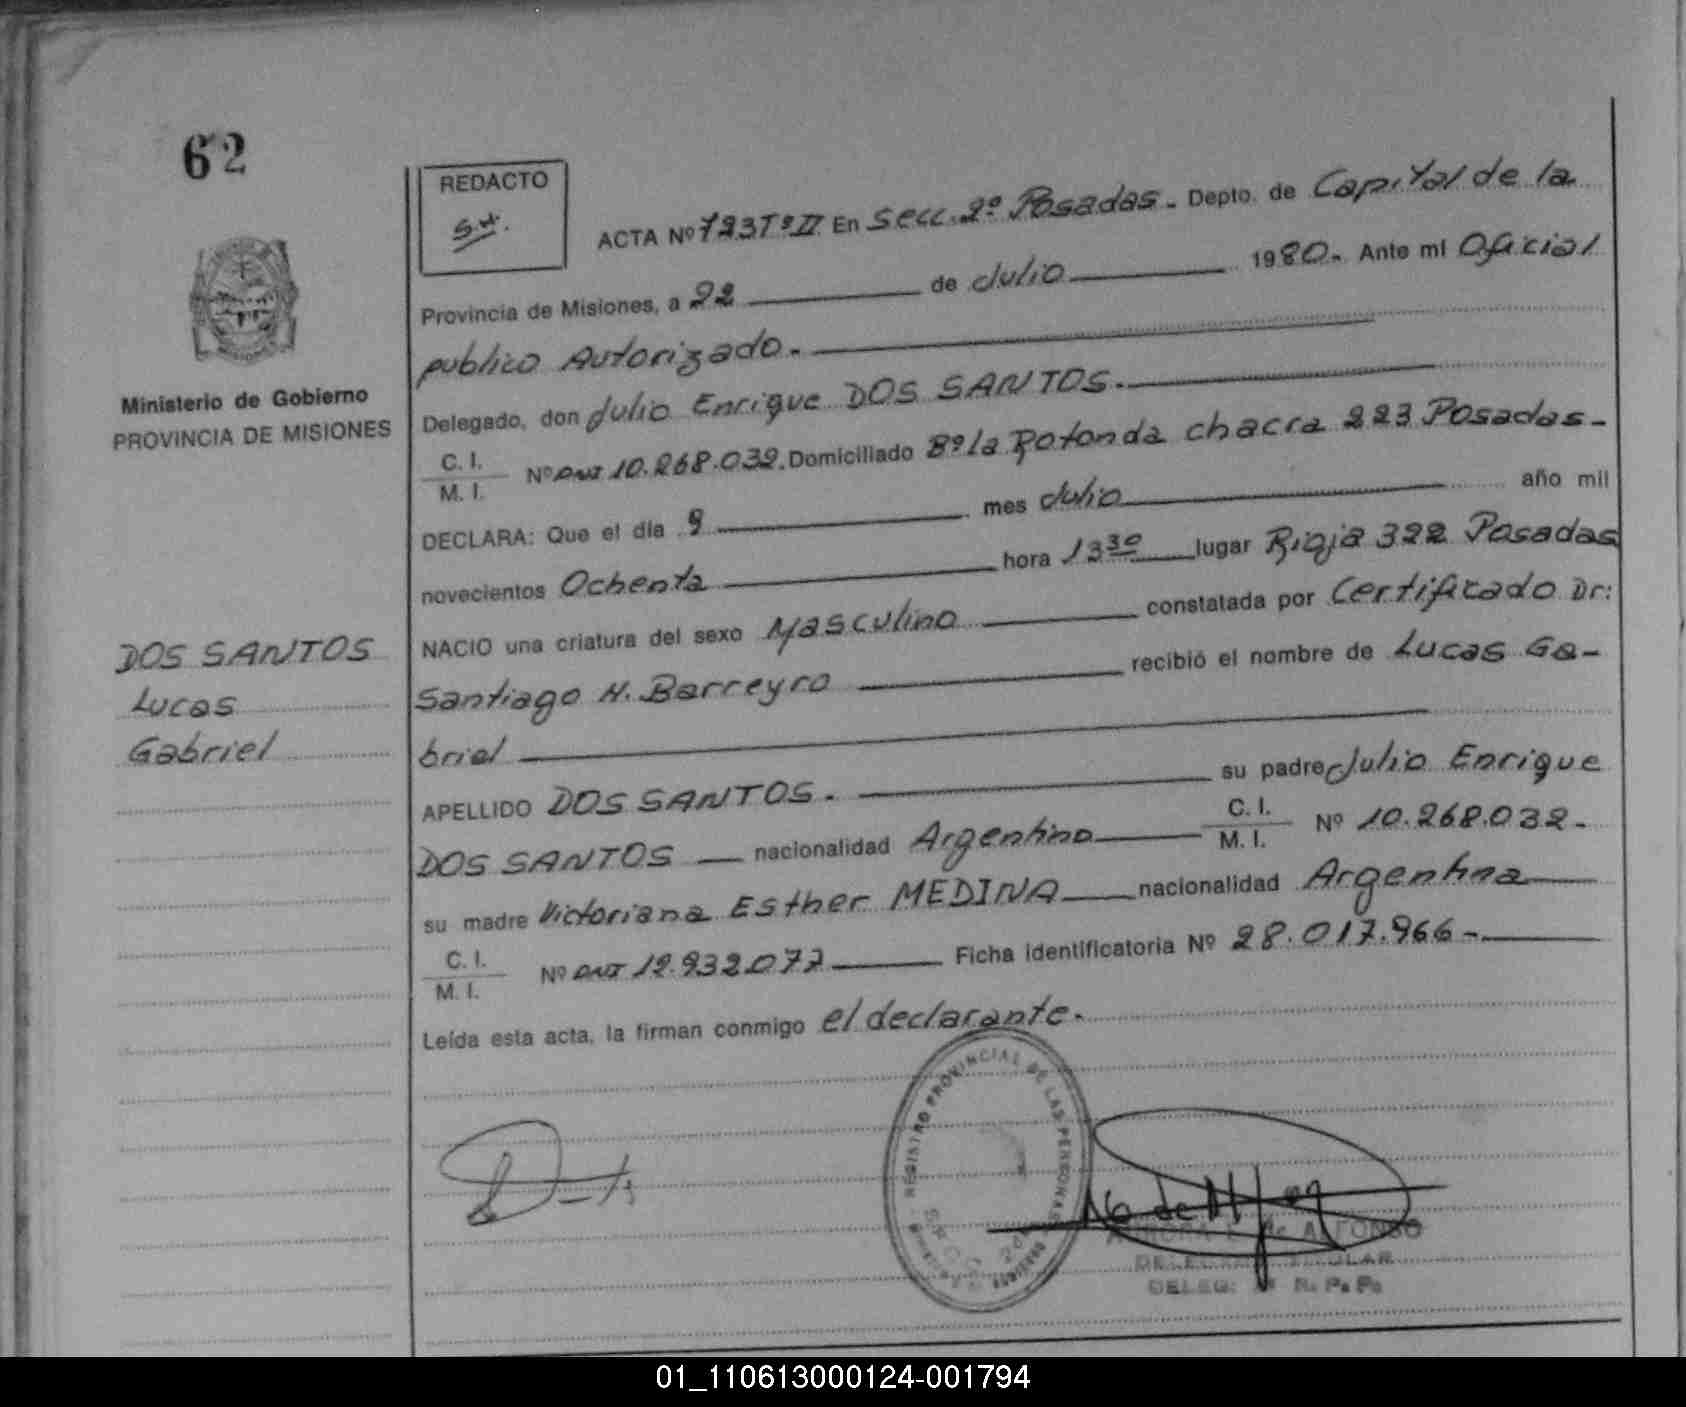 62
REDACTO
S.H.
ACTA Nº 723 Tº II En Secc. 2º Posadas. Depto. de Capital de la
Provincia de Misiones, a 22 de Julio 1980. Ante mí Oficial
publico Autorizado.
Delegado, don Julio Enrique DOS SANTOS.
C. I.
M. I.
Nº DNI 10.268.032. Domiciliado Bº la Rotonda chacra 223 Posadas-
DECLARA: Que el día 9 mes Julio año mil
novecientos Ochenta hora 13 30 lugar Rioja 322 Posadas
NACIO una criatura del sexo Masculino constatada por Certificado Dr:
Santiago H. Barreyro recibió el nombre de Lucas Ga-
briel
APELLIDO DOS SANTOS. su padre Julio Enrique
DOS SANTOS nacionalidad Argentino C. I.
M. I. Nº 10.268.032-
su madre Victoriana Esther MEDINA nacionalidad Argentina
C. I.
M. I.
Nº DNI 12.932.077 Ficha identificatoria Nº 28.017.966-
Leída esta acta, la firman conmigo el declarante.
Ministerio de Gobierno
PROVINCIA DE MISIONES
DOS SANTOS
Lucas
Gabriel
REGISTRO PROVINCIAL DE LAS PERSONAS
de ALFONSO
TITULAR
DELEG: R. P. P.
01_110613000124-001794